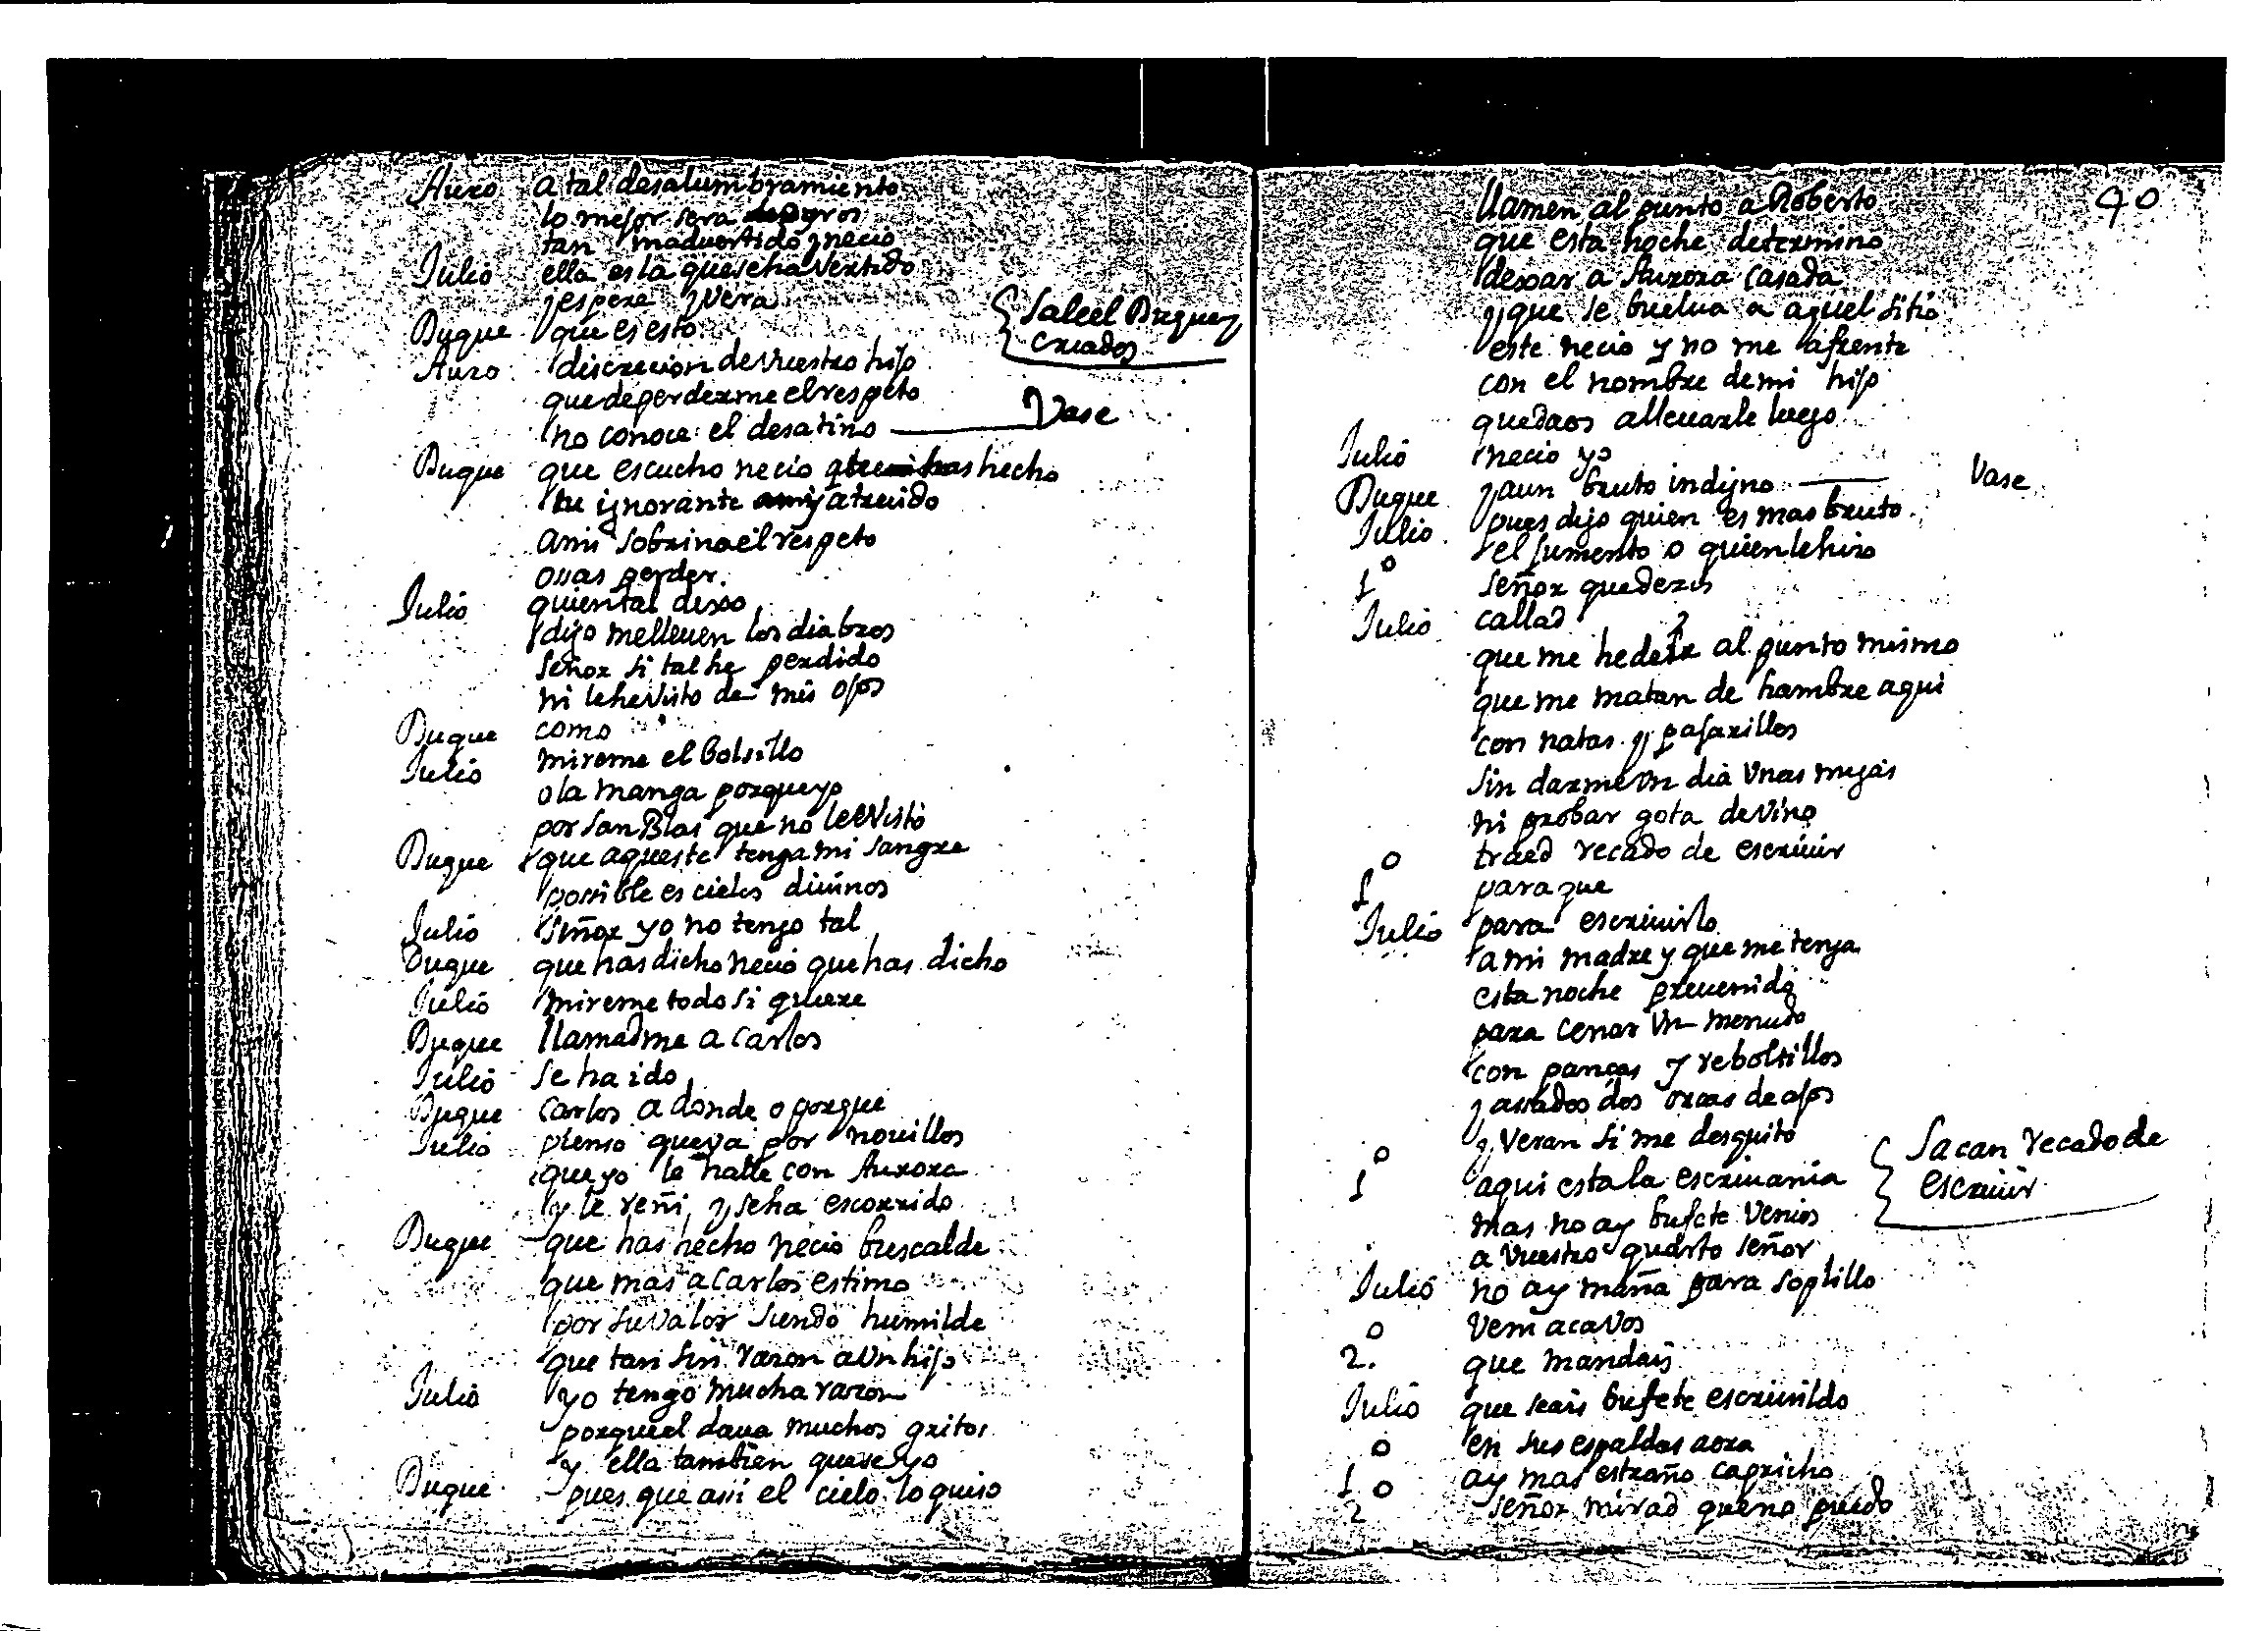 Auro a tal desalumbramiento
lo mejor sera
tan inaduertido y necio
Julio ella es la que se ha vertido
y espere y vera
Duque que es esto
{ Sale el Duque y
criados
Auro discrecion de vuestro hijo
que de perderme el respeto
no conoce el desatino Vase
Duque que escucho necio que has hecho
tu ignorante atreuido
a mi sobrina el respeto
ossas perder
Julio quien tal dixo
digo me lleuen los diabros
señor si tal he perdido
ni le he visto de mis ojos
Duque como
Julio mireme el bolsillo
o la manga porque yo
por san Blas que no lee visto
Duque que aqueste tenga mi sangre
possible es cielos diuinos
Julio señor yo no tengo tal
Duque que has dicho necio que has dicho
Julio mireme todo si quiere
Duque llamadme a Carlos
Julio se ha ido
Duque Carlos a donde o porque
Julio pienso que va por nouillos
que yo le halle con Aurora
y le reñi, y se ha escorrido
Duque que has hecho necio buscalde
que mas a Carlos estimo
por su valor siendo humilde
que tan sin razon a un hijo
Julio yo tengo mucha razon
porque el daua muchos gritos
y ella tambien que se yo
Duque pues que assi el cielo lo quiso
90
llamen al punto a Roberto
que esta noche determino
dexar a Aurora casada
y que se buelua a aquel sitio
este necio y no me afrente
con el nombre de mi hijo
quedaos a lleuarle luego
Julio necio yo
Duque y aun bruto indigno Vase
Julio pues digo quien es mas bruto
el jumento o quien le hizo
1º señor que dezis
Julio callad
que me he de ir al punto mismo
que me matan de hambre aqui
con natas y pajarillos
sin darme un dia unas migas
ni probar gota de vino
traed recado de escriuir
1º para que
Julio para escriuirlo
a mi madre y que me tenga
esta noche preuenido
para cenar un menudo
con panças y reboltillos
y assados dos orcas de ajos
y veran si me desquito
1º aqui esta la escriuania
{ Sacan recado de
escriuir
mas no ay bufete venios
a vuestro quarto señor
Julio no ay maña para soplillo
veni aca vos
2º que mandais
Julio que seais bufete escriuildo
en sus espaldas aora
1º ay mas estraño capricho
2º señor mirad que no puedo